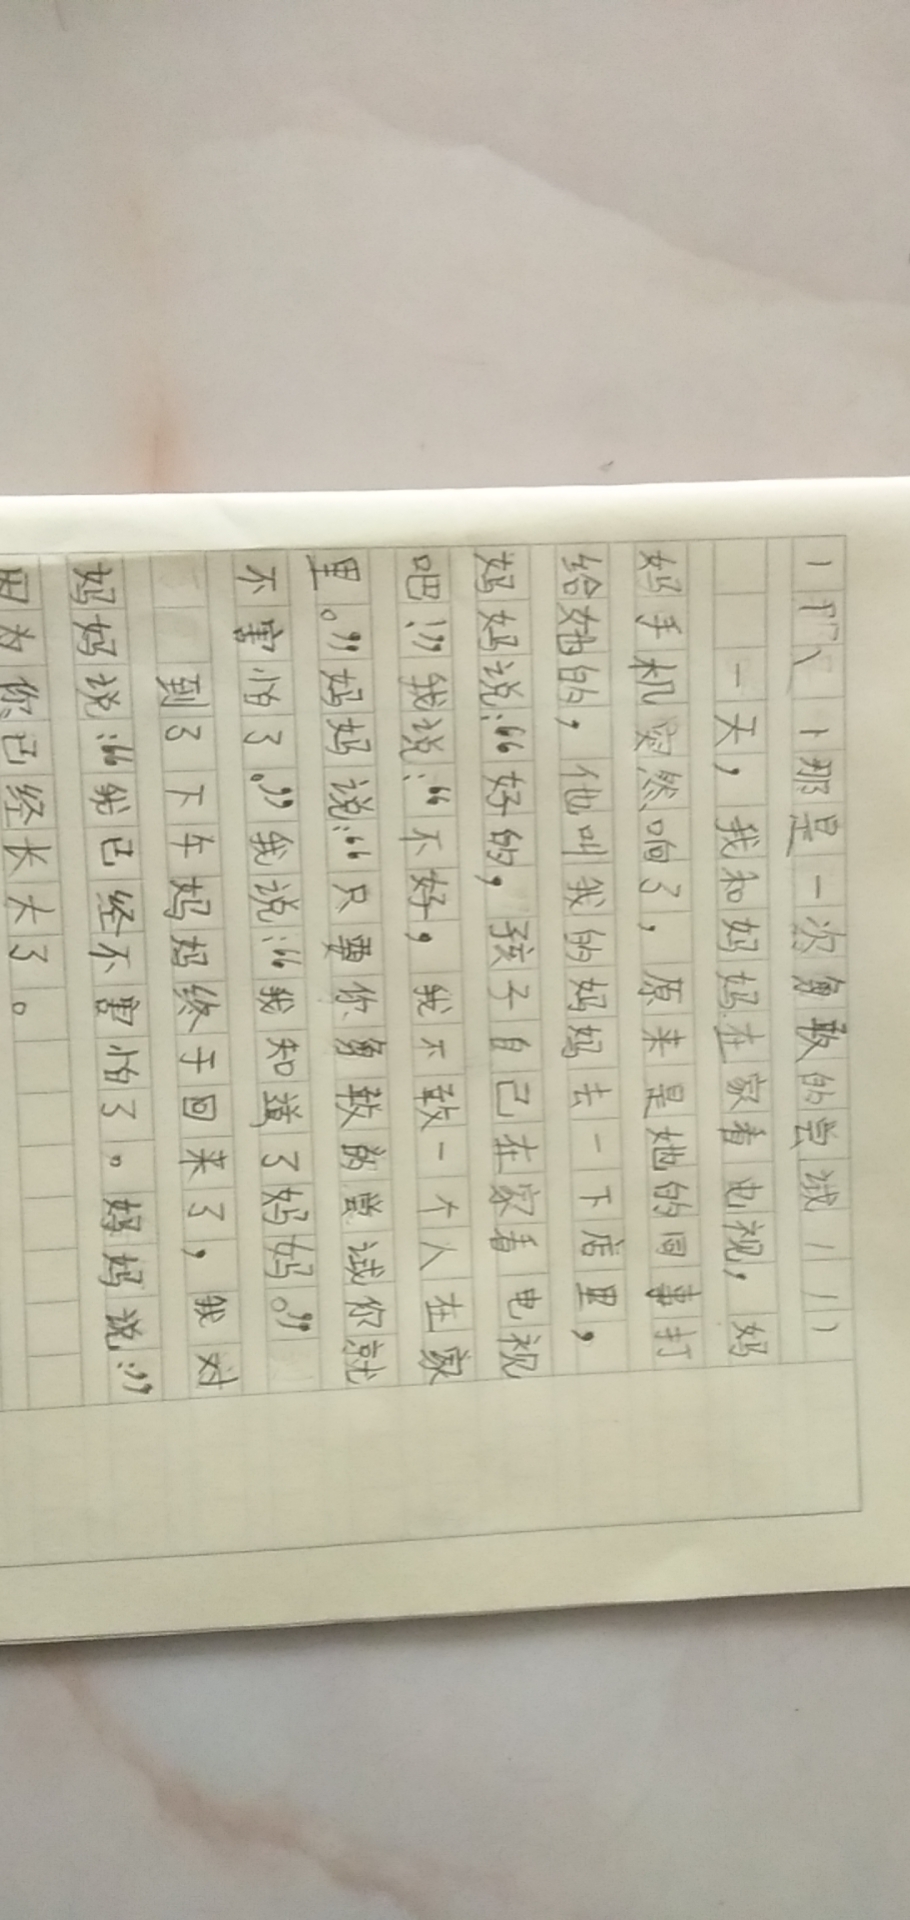 那是一次勇敢的尝试
一天，我和妈妈在家看电视，妈
妈手机突然响了，原来是她的同事打
给她的，他叫我的妈妈去一下店里，
妈妈说：“好的，孩子自己在家看电视
吧！”我说：“不好，我不敢一个人在家
里。”妈妈说：“只要你勇敢的尝试你就
不害怕了。”我说：“我知道了妈妈。”
到了下午妈妈终于回来了，我对
妈妈说：“我已经不害怕了。妈妈说：”
因为你已经长大了。